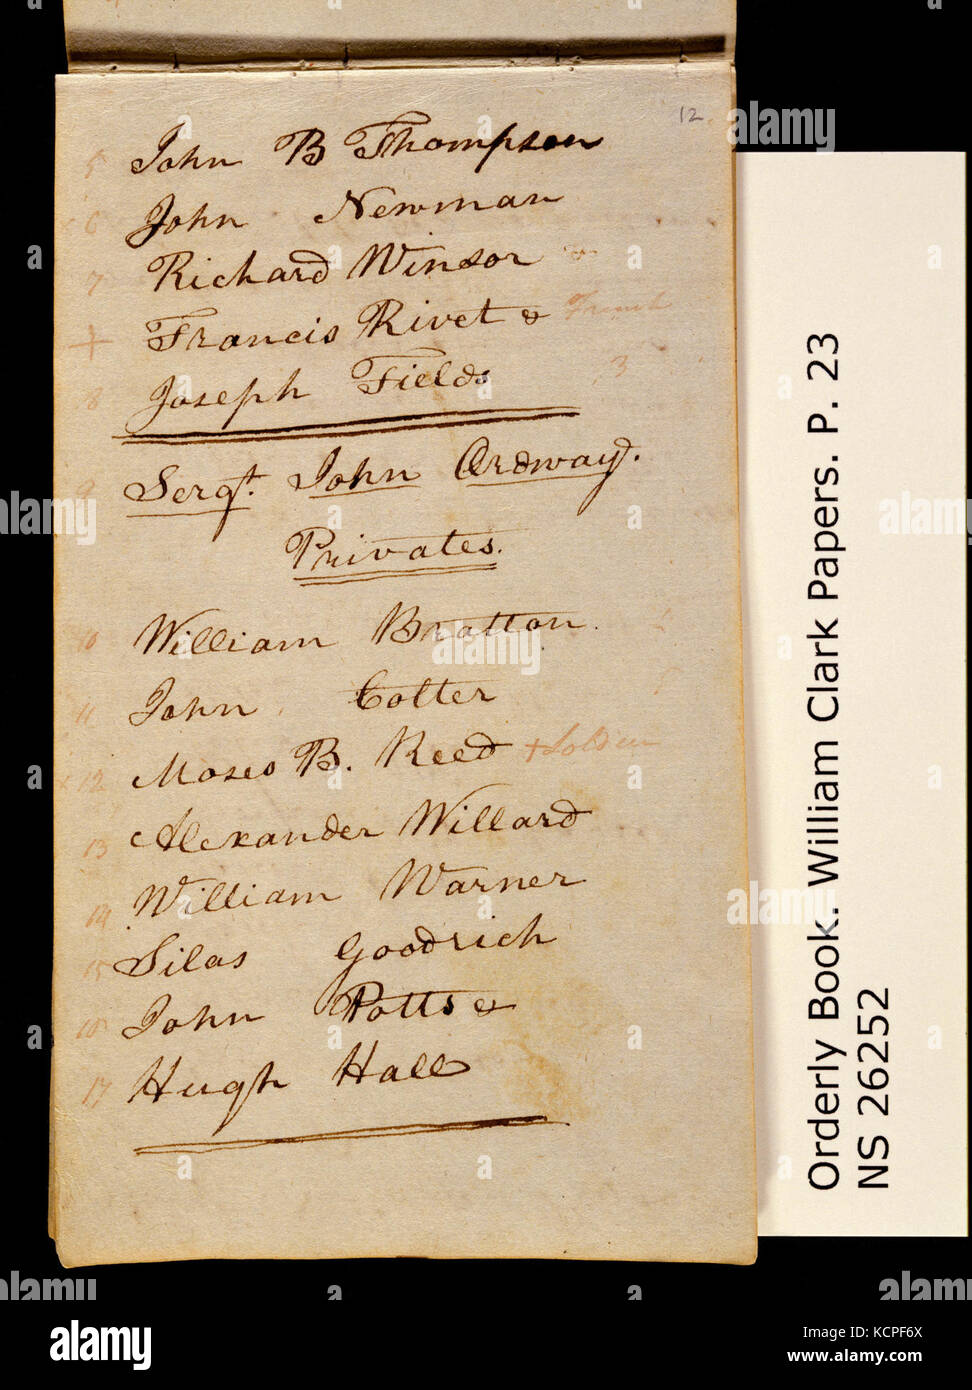 12
5 John B Thompson
x 6 John Newman
7 Richard Winsor
+ Francis Rivet & French
8 Joseph Fields 3
9 Sergt. John Ordway.
Privates.
10 William Bratton.
11 John Colter
x 12 Moses B. Reed +
13 Alexander Willard
14 William Warner
15 Silas Goodrich
16 John Potts &
17 Hugh Hall
Orderly Book. William Clark Papers. P. 23
NS 26252
alamy
a
alamy stock photo
Image ID: KCPF6X
www.alamy.com